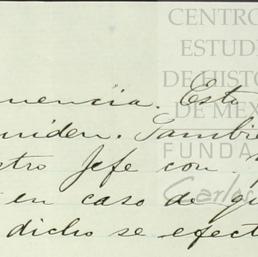 CENTRO
ESTUDI
DE HISTO
DE MÉX
FUNDA
Carlos
nuencia. Esta
uiden. Tambie
stro Jefe con
en caso de qu
dicho se efect